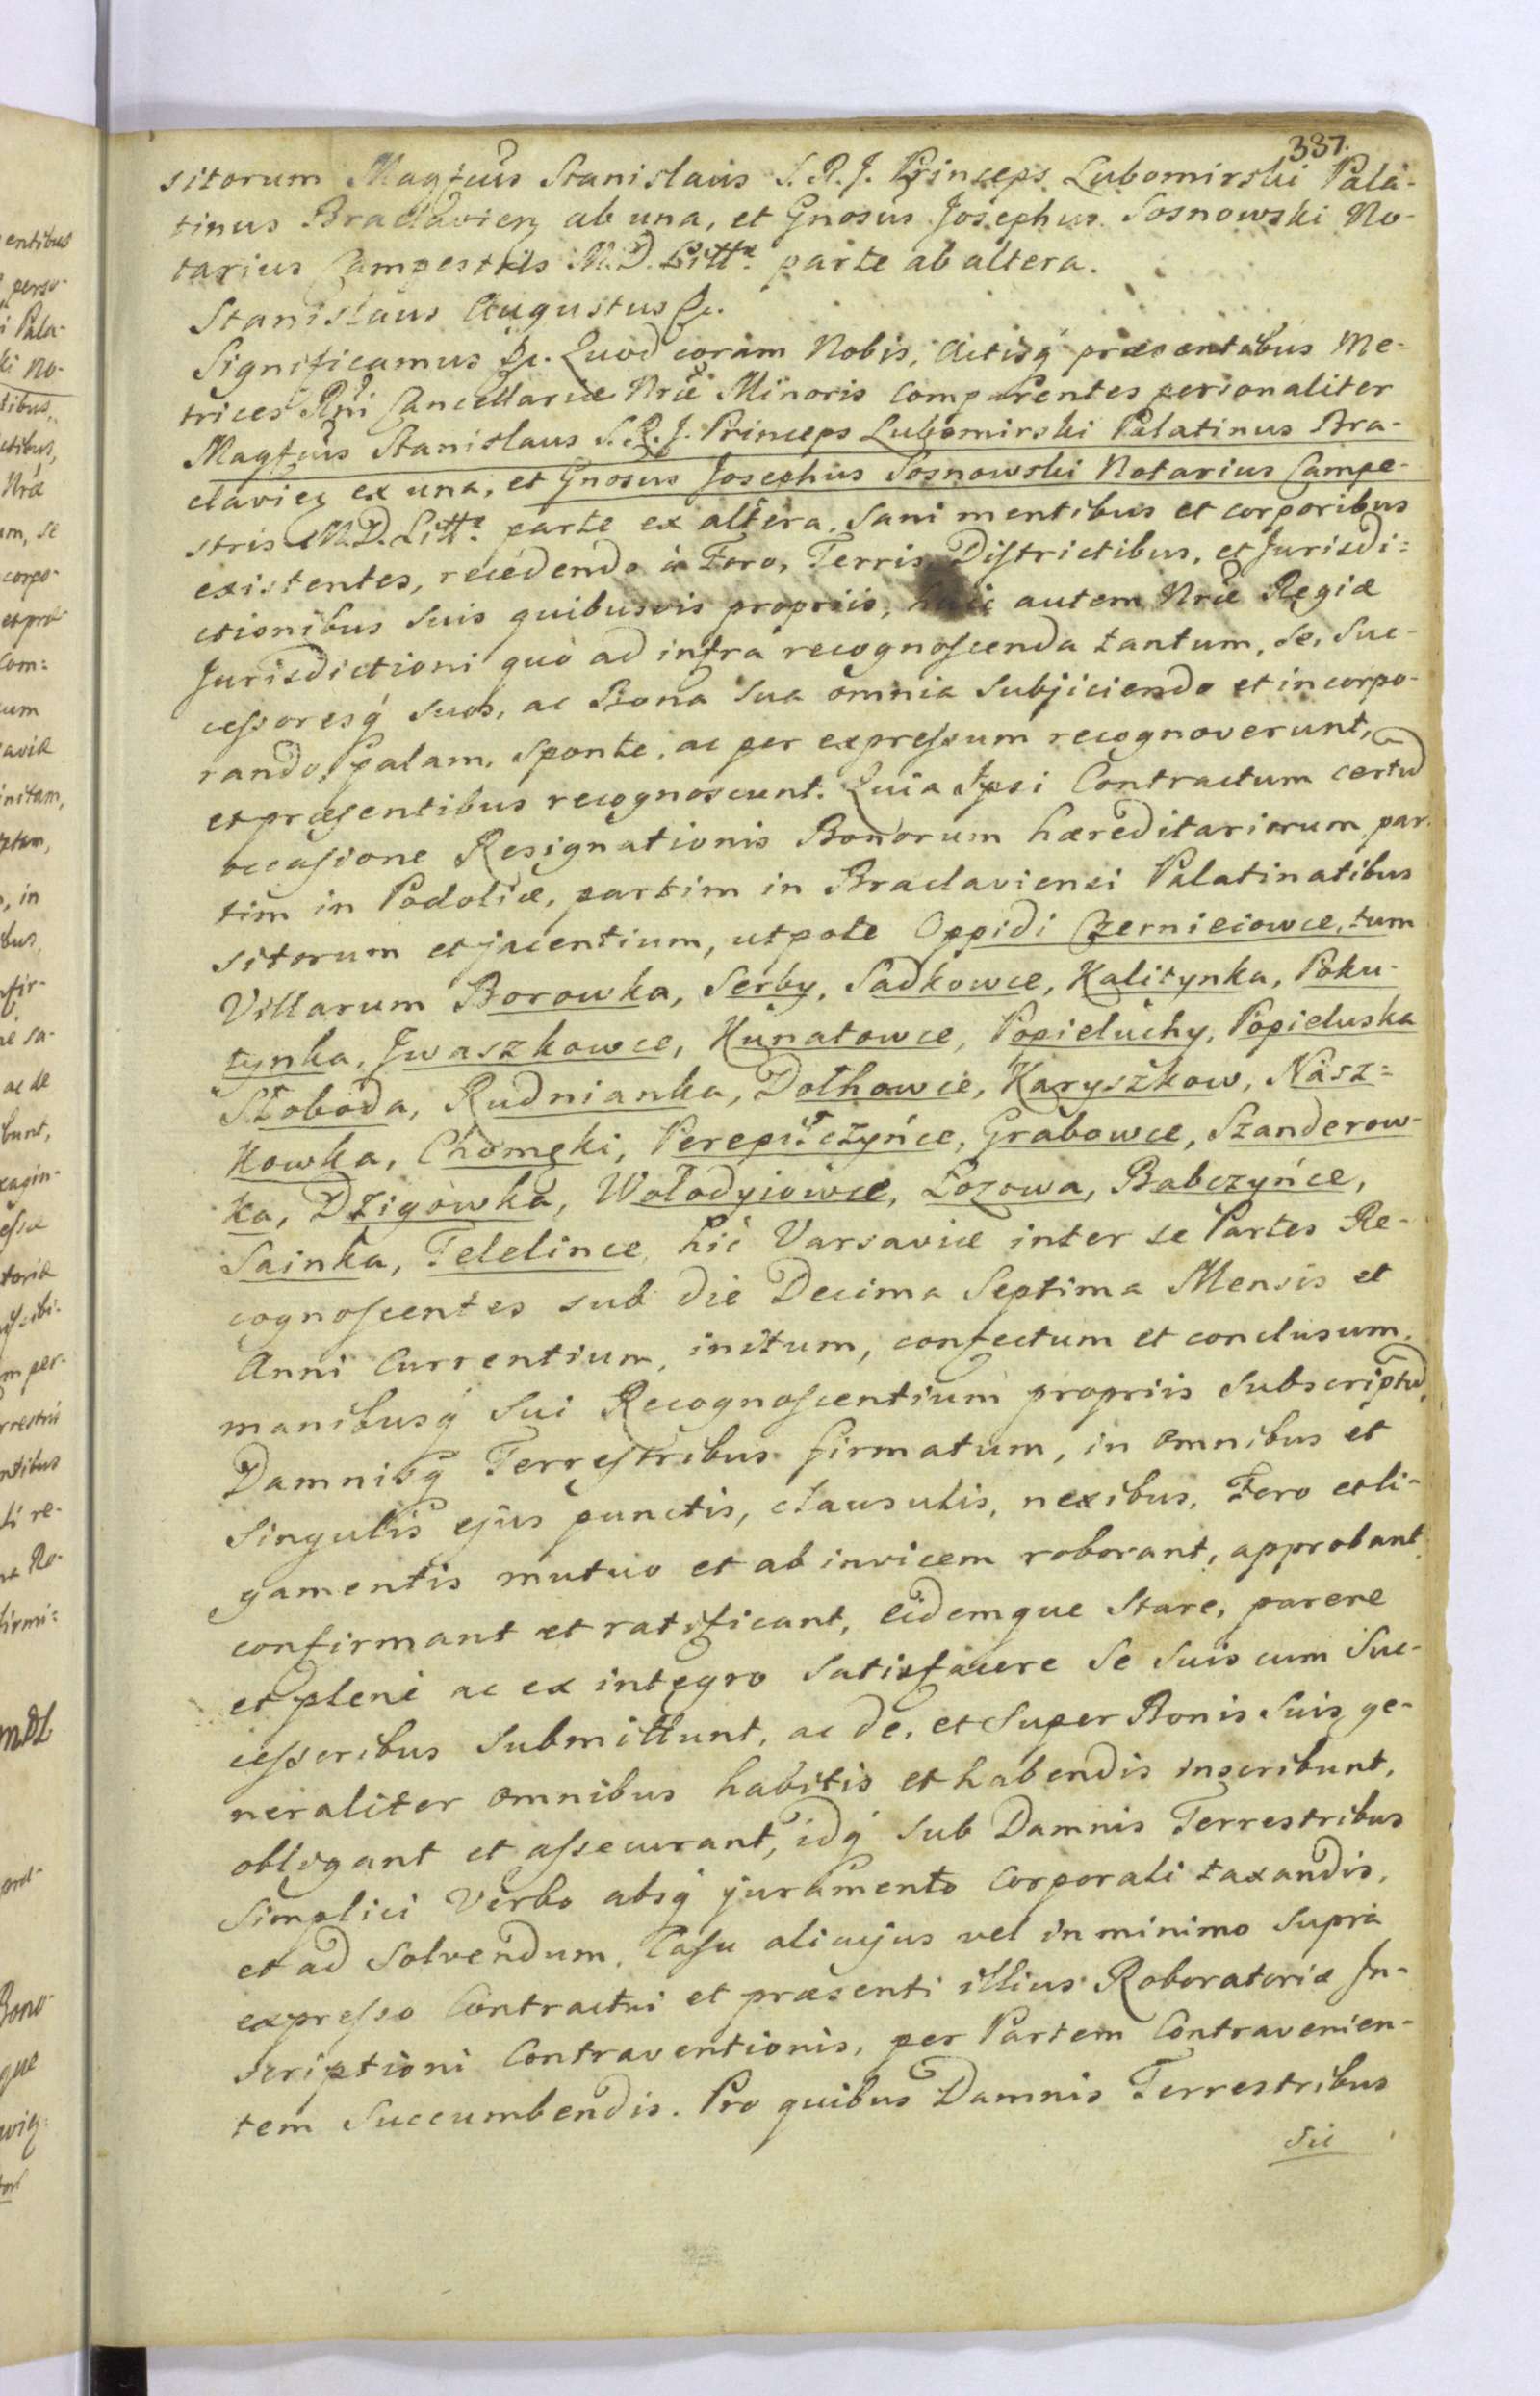 337.
sitorum Magfcus Stanislaus S. R. J. Princeps Lubomirski Pala-
tinus Braclavien ab una, et Gnosus Josephus Sosnowski No-
tarius Campestris M. D. Littæ parte ab altera.
Stanislaus Augustus &c.
Significamus &c. Quod coram Nobis, Actisq́ præsentibus Me-
trices Rni Cancellariæ Nræ Minoris Comparentes personaliter
Magfcus Stanislaus S. R. J. Princeps Lubomirski Palatinus Bra-
claviez ex una, et Gnosus Josephus Sosnowski Notarius Campe-
stris M. D. Litt. parte ex altera, Sani mentibus et corporibus
existentes, recedendo à Foro, Terris Districtibus, et Jurisdi=
ctionibus Suis quibusvis propriis, huic autem Nræ Regiæ
Jurisdictioni quò ad infra recognoscenda tantum, se, Suc-
cessoresq́ suos, ac Bona sua omnia Subjiciendo et incorpo-
rando, palam, sponte, ac per expressum recognoverunt,
et præsentibus recognoscunt. Quia Ipsi Contractum certũ
occasione Resignationis Bonorum hæreditariorum par-
tim in Podoliæ, partim in Braclaviensi Palatinatibus
sitorum et jacentium, utpote Oppidi Czernieiowce, tum
Villarum Borowka, Serby, Sadkowce, Kalitynka, Poku-
tynka, Jwaszkowce, Kunatowce, Popieluchy, Popieluska
Słoboda, Rudnianka, Dołhowce, Karyszkow, Nasz=
Kowka, Chomęki, Perepiłczyńce, Grabowce, Szanderow-
ka, Dzigówka, Wołodyiowce, Łozowa, Babczyńce,
Sainka, Telelince hìc Varsaviæ inter se Partes Re-
cognoscentes sub die Decima Septima Mensis et
Anni Currentium, initum, confectum et conclusum,
manibusq́ Sui Recognoscentium propriis Subscriptũ,
Damnisq́ Terrestribus firmatum, in omnibus et
Singulis ejus punctis, clausulis, nexibus, Foro et li-
gamentis mutuo et ab invicem roborant, approbant,
confirmant et ratificant, eidemque Stare, parere
et plenè ac ex integro Satisfacere Se Suis cum Suc-
cessoribus Submittunt, ac de, et Super Bonis Suis ge-
neraliter omnibus habitis et habendis inscribunt,
obligant et assecurant, idq́ Sub Damnis Terrestribus
Simplici Verbo absq́ juramento Corporali taxandis,
et ad Solvendum, Casu alicujus vel in minimo Supra
expresso Contractui et præsenti illius Roboratoriæ In-
scriptioni Contraventionis, per Partem Contravenien-
tem Succumbendis. Pro quibus Damnis Terrestribus
sic